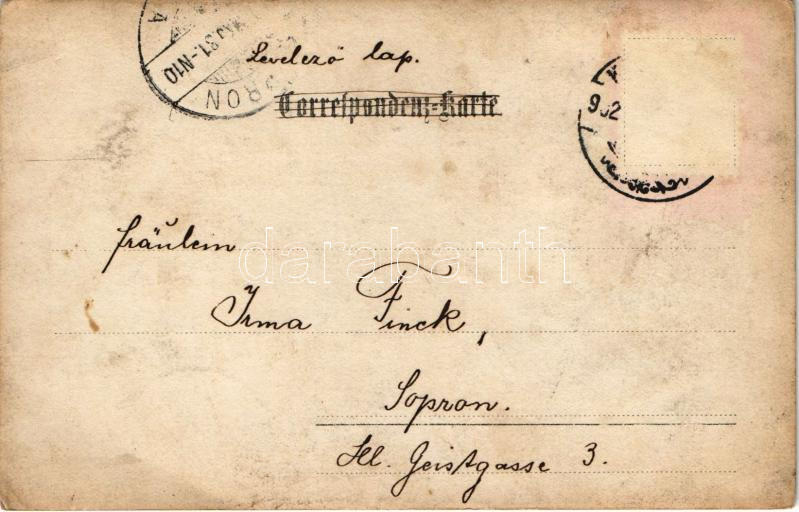 Levelező lap.
Correspondenz-Karte
Fräulein
Irma Finck,
Sopron.
Hl. Geistgasse 3.
darabanth